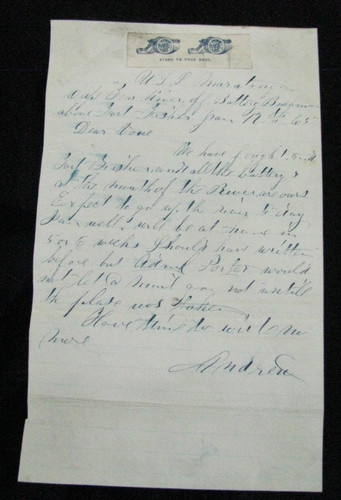 STAND TO YOUR GUNS.
U.S.S.
of Battery
above Fort Fisher Jan 65
Dear
We have fought and
Fort Fisher and all the battery s
at the mouth of the River are ours
Expect to go up the river to day
I am well will be at home in
5 or 6 weeks I should have written
before but Adml Porter would
not let a mail go, not untill
the place was taken
Have time to write no
more
Andrew